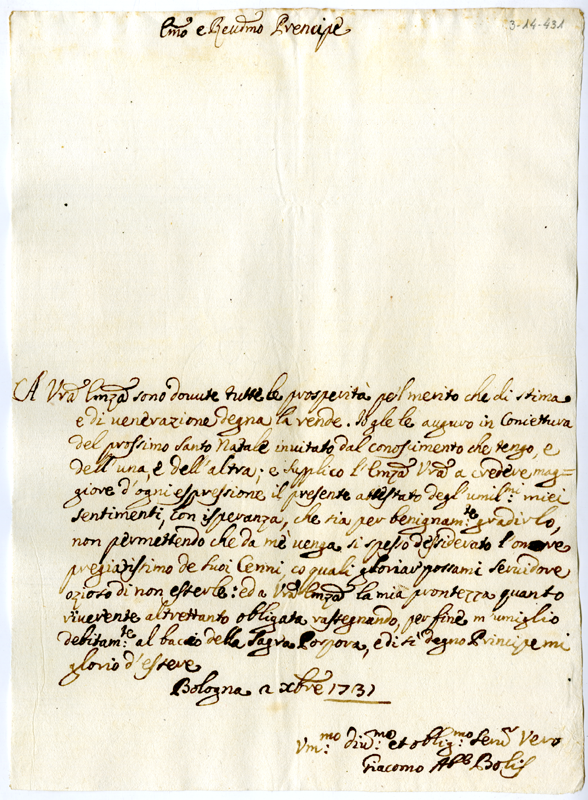 Emo e Revdmo Prencipe
3-14-431
A Vra Emza sono dovute tutte le prosperità pe'l merito che di stima
e di venerazione degna la rende. Io gle le auguro in Coniettura
del prossimo Santo Natale invitato dal conoscimento che tengo, e
dell'una, e dell'altra; e supplico l'Emza Vra a credere mag-
giore d'ogni espressione il presente attestato degl'umil.mi miei
sentimenti, con isperanza, che sia per benignam.te gradirlo,
non permettendo che da mè venga sì spesso dessiderato l'onore
pregiatissimo de suoi Cenni co quali gloriar possami servidore
ozioso di non esserle: ed a Vra Emza la mia prontezza quanto
riverente altrettanto obligata rassegnando, per fine m'umiglio
debitam.te al baccio della Sagra Porpora, e di sì degno Principe mi
glorio d'essere
Bologna 2 Xbre 1731
Vm.mo div.mo et oblig.mo Serv Vero
Giacomo Abe Bolis